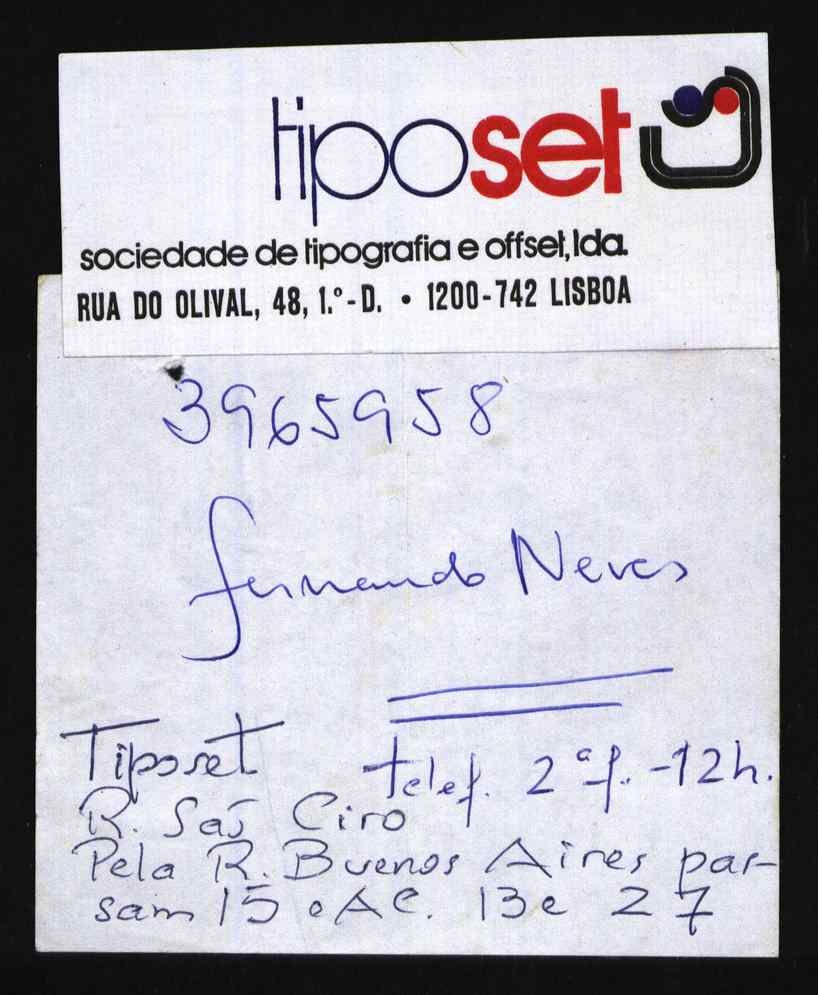 tiposet
sociedade de tipografia e offset, lda.
RUA DO OLIVAL, 48, 1.º - D. • 1200-742 LISBOA
3965958
Fernando Neves
Tiposet
telef. 2ª f. - 12h.
R. São Ciro
Pela R. Buenos Aires pas-
sam 15 e AC. 13 e 27